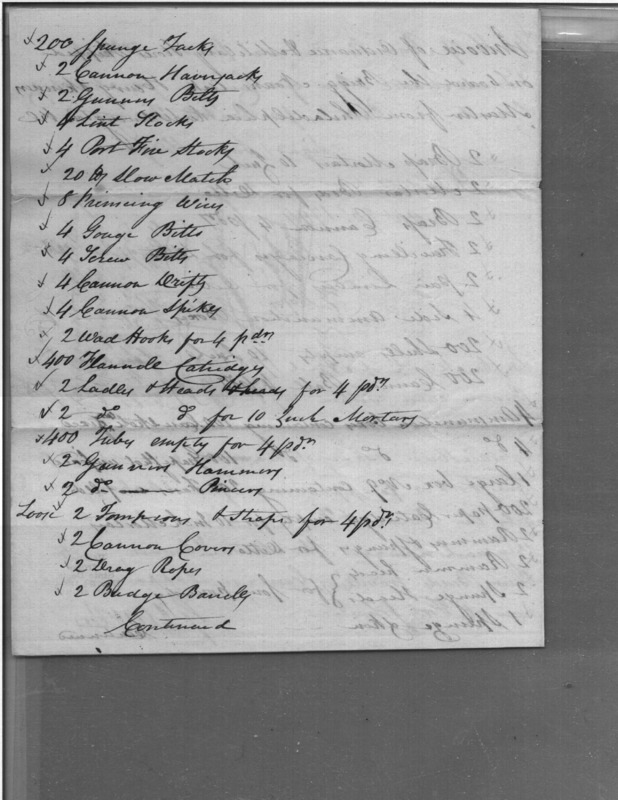 200 Spunge Tacks
2 Cannon Haversacks
2 Gunners Bitts
4 Lint Stocks
4 Port Fire Stocks
20 lb Slow Match
8 Priming Wires
4 Gouge Bitts
4 Screw Bitts
4 Cannon Drifts
4 Cannon Spikes
2 Wad Hooks for 4 pdrs
400 Flannele Catridges
2 Ladles & Heads for 4 pdrs
2 do do for 10 Inch Mortars
400 Tubes empty for 4 pdrs
2 Gunners Hammers
2 do Pincers
Loose 2 Tompions & Straps for 4 pdrs
2 Cannon Covers
2 Drag Ropes
2 Budge Barrells
Continued